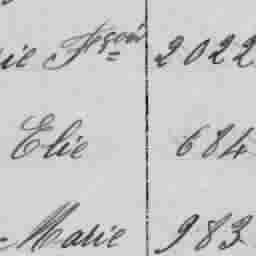 ie Fçois 2022
Elie 684
Marie 983